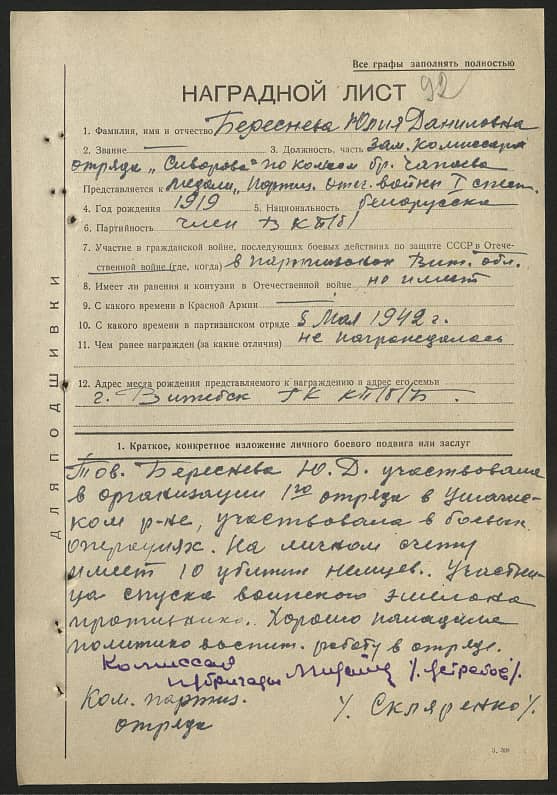 Все графы заполнять полностью
НАГРАДНОЙ ЛИСТ 92
1. Фамилия, имя и отчество Береснева Юлия Даниловна
2. Звание — 3. Должность, часть Зам. комиссара
отряда „Суворова" по комсом бр. Чапаева
Представляется к медали „Партиз. отеч. войны I степ.
4. Год рождения 1919 5. Национальность белорусска
6. Партийность член ВКП/б/
7. Участие в гражданской войне, последующих боевых действиях по защите СССР в Отече-
ственной войне (где, когда) в партизанах Вит. обл.
8. Имеет ли ранения и контузии в Отечественной войне не имеет
9. С какого времени в Красной Армии —
10. С какого времени в партизанском отряде с Мая 1942 г.
11. Чем ранее награжден (за какие отличия) не награждалась
12. Адрес места рождения представляемого к награждению в адрес его семьи
г. Витебск ГК КП/б/Б.
ДЛЯ ПОДШИВКИ
1. Краткое, конкретное изложение личного боевого подвига или заслуг
Тов. Береснева Ю. Д. участвовала
в организации 1го отряда в Ушачс-
ком р-не, участвовала в боевых
операциях. На личном счету
имеет 10 убитых немцев. Участни-
ца спуска воинского эшелона
противника. Хорошо
политико воспит. работу в отряде.
Комиссар
п/бригады
Ком. партиз.
отряда /Скляренко/.